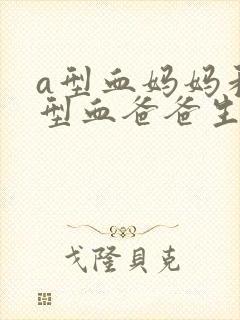 a型血妈妈
型血爸爸生
戈隆贝克